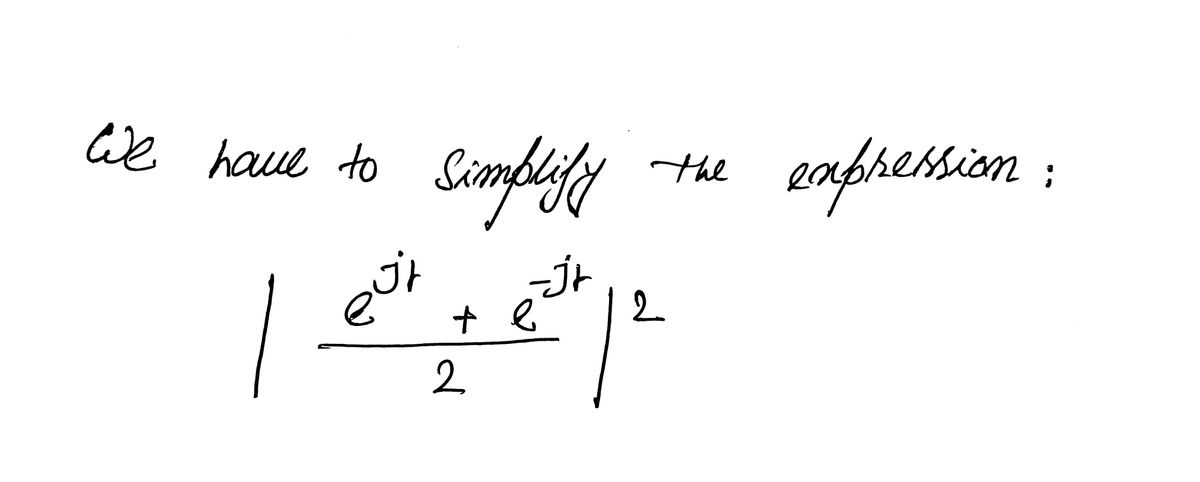 We have to simplify the expression :
| (e^{jt} + e^{-jt}) / 2 |^2